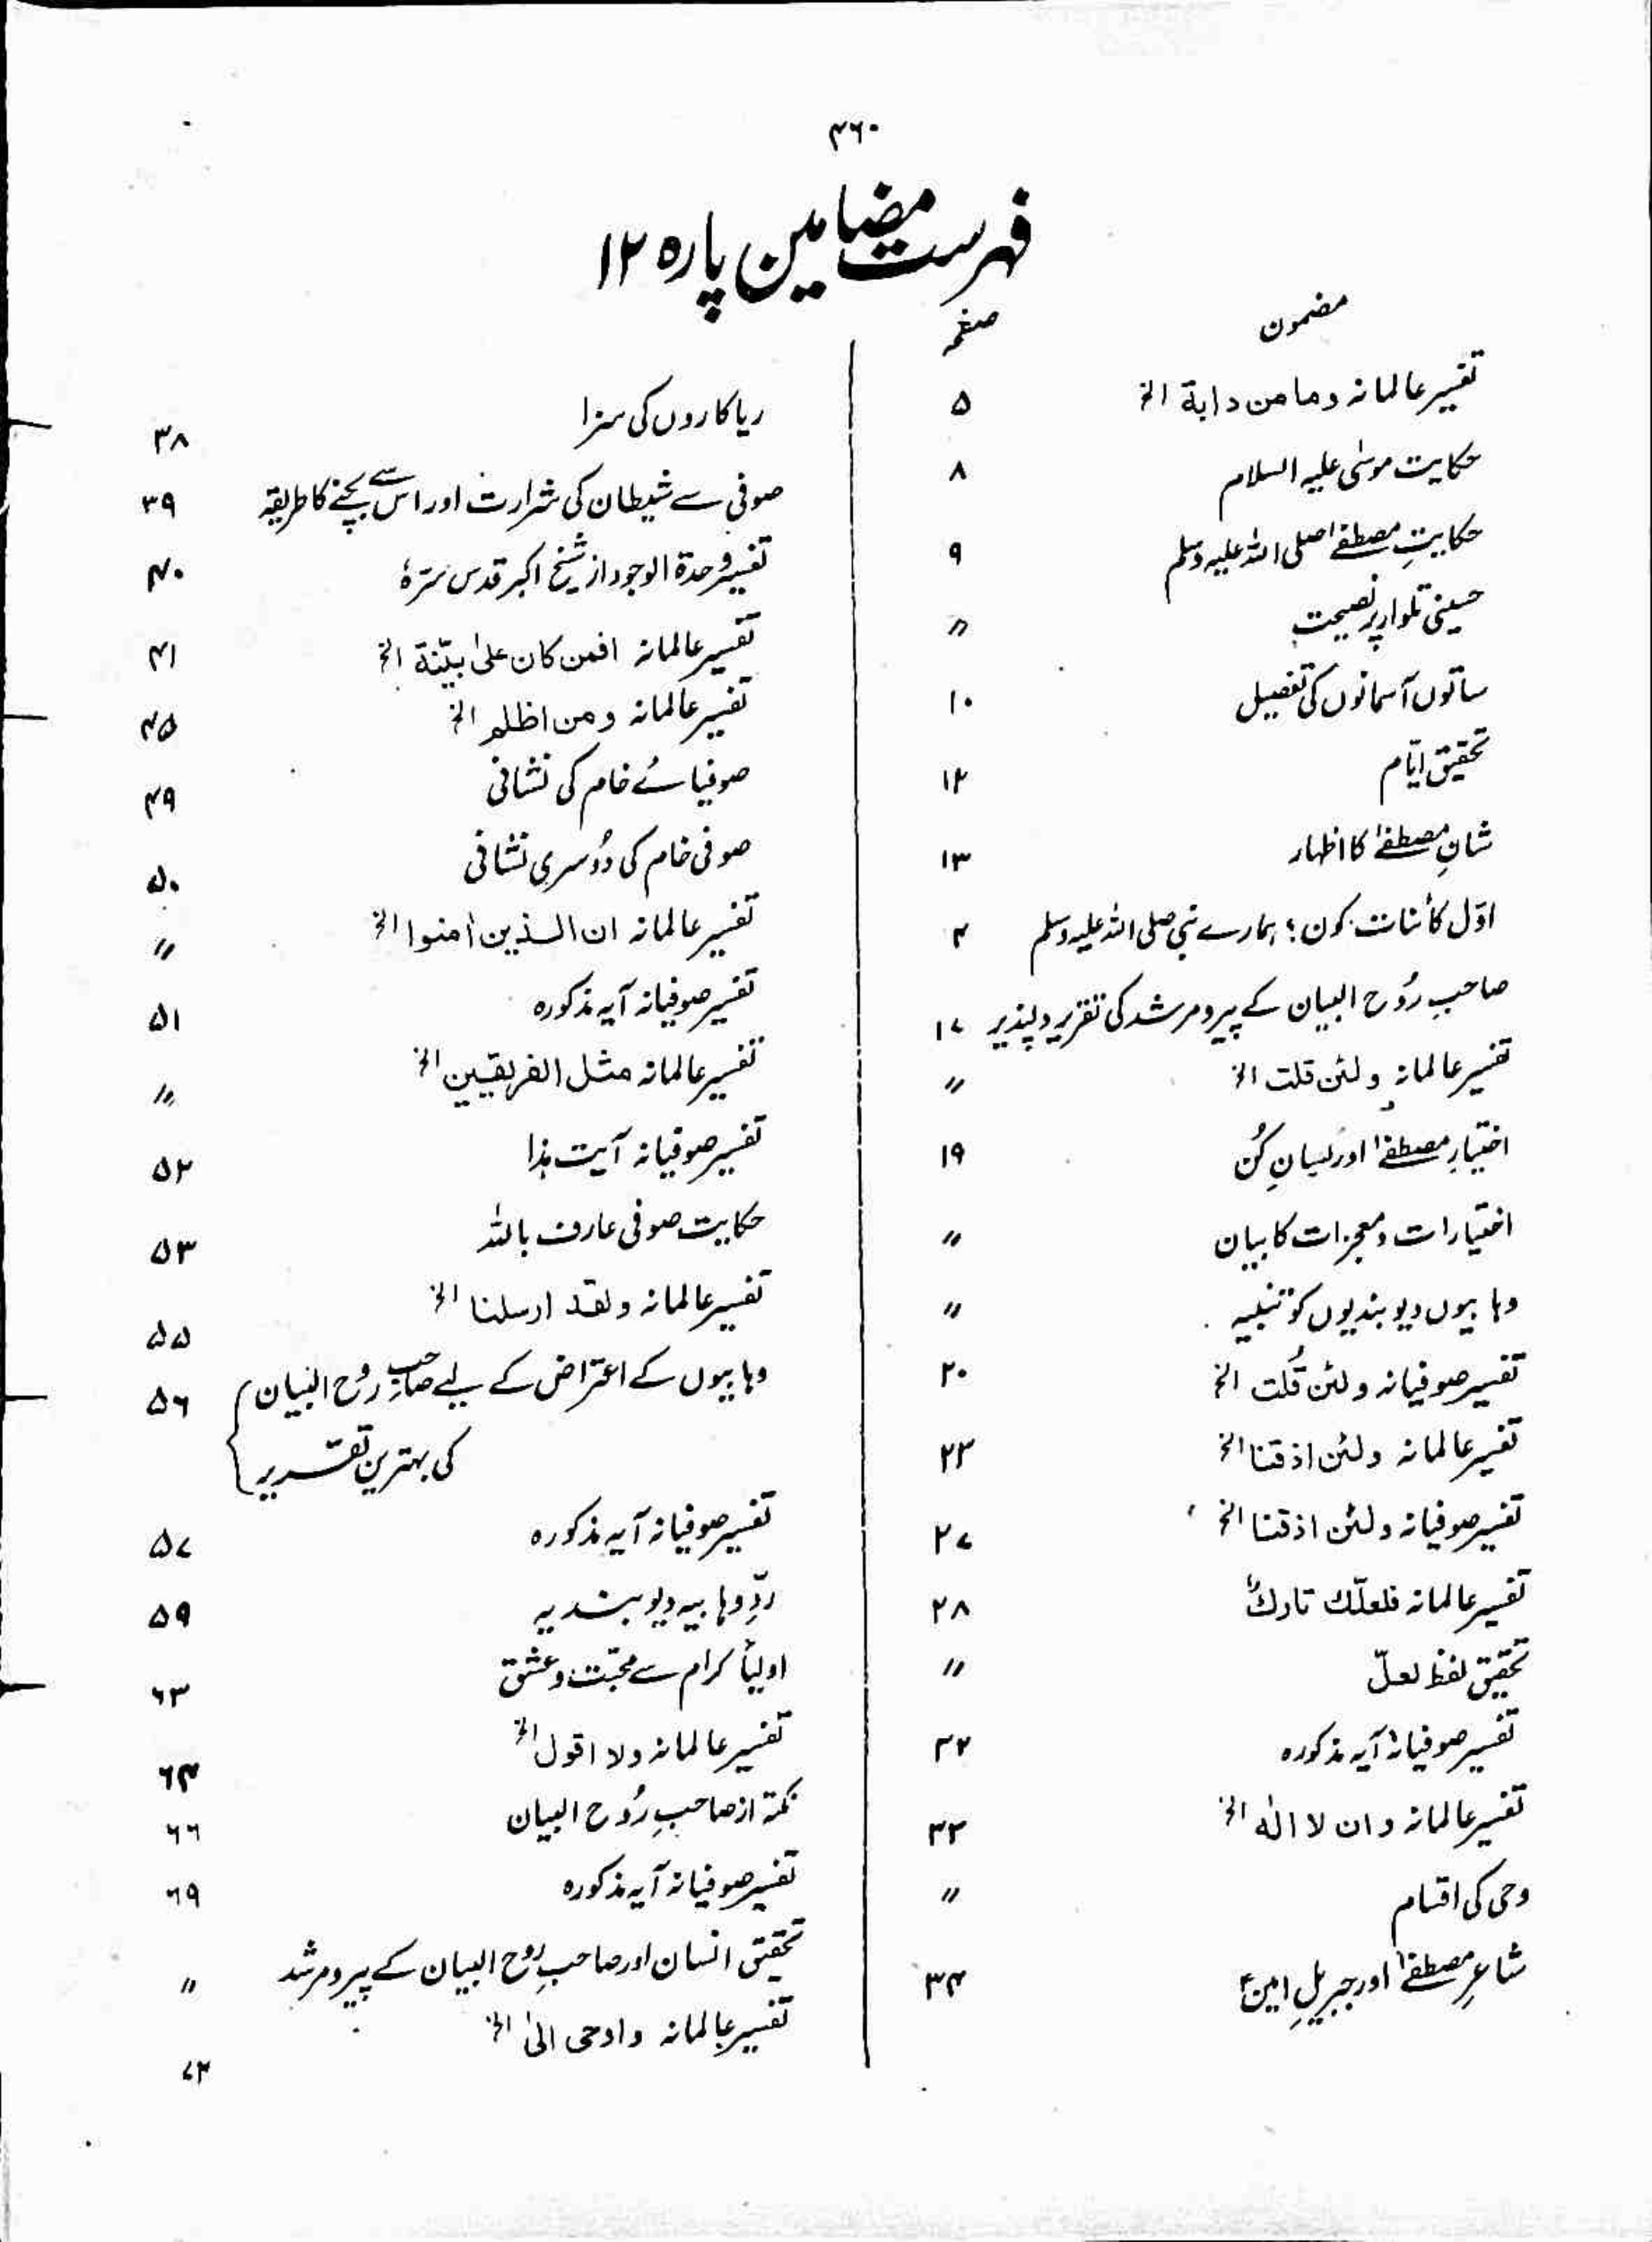 ۳۶۰
فہرست مضامین پارہ ۱۲
مضمون صفحہ
تفسیر عالمانہ وما من دابة الخ ۵
حکایت موسیٰ علیہ السلام ۸
حکایتِ مصطفےٰ صلی اللہ علیہ وسلم ۹
حسینی تلوار پر نصیحت "
ساتوں آسمانوں کی تفصیل ۱۰
تحقیق ایّام ۱۲
شانِ مصطفےٰ کا اظہار ۱۳
اوّل کائنات کون؛ ہمارے نبی صلی اللہ علیہ وسلم ۴
صاحبِ رُوح البیان کے پیر و مرشد کی تقریر دلپذیر ۱۷
تفسیر عالمانہ ولئن قلت الخ "
اختیارِ مصطفےٰ اور لسانِ کُن ۱۹
اختیارات و معجزات کا بیان "
وہابیوں دیوبندیوں کو تنبیہ "
تفسیر صوفیانہ ولئن قُلت الخ ۲۰
تفسیر عالمانہ ولئن اذقنا الخ ۲۲
تفسیر صوفیانہ ولئن اذقنا الخ ۲۷
تفسیر عالمانہ فلعلّک تارکٌ ۲۸
تحقیق لفظ لعلّ "
تفسیر صوفیانہ آیہ مذکورہ ۳۲
تفسیر عالمانہ وان لا الٰہ الخ ۳۳
وحی کی اقسام "
شاعرِ مصطفےٰ اور جبریلِ امینؑ ۳۴
ریاکاروں کی سزا ۳۸
صوفی سے شیطان کی شرارت اور اس سے بچنے کا طریقہ ۳۹
تفسیر وحدۃ الوجود از شیخ اکبر قدس سرّہٗ ۴۰
تفسیر عالمانہ افمن کان علیٰ بیّنة الخ ۴۱
تفسیر عالمانہ ومن اظلم الخ ۴۵
صوفیائے خام کی نشانی ۴۹
صوفی خام کی دُوسری نشانی ۵۰
تفسیر عالمانہ ان الذین اٰمنوا الخ "
تفسیر صوفیانہ آیہ مذکورہ ۵۱
تفسیر عالمانہ مثل الفریقین الخ "
تفسیر صوفیانہ آیت ہٰذا ۵۲
حکایت صوفی عارف باللہ ۵۳
تفسیر عالمانہ ولقد ارسلنا الخ ۵۵
وہابیوں کے اعتراض کے لیے صاحبِ رُوح البیان ۵۶
کی بہترین تقریر
تفسیر صوفیانہ آیہ مذکورہ ۵۷
ردِّ وہابیہ دیوبندیہ ۵۹
اولیأ کرام سے محبّت و عشق ۶۳
تفسیر عالمانہ ولا اقول الخ ۶۴
نکتہ از صاحبِ رُوح البیان ۶۶
تفسیر صوفیانہ آیہ مذکورہ ۶۹
تحقیق انسان اور صاحبِ رُوح البیان کے پیر و مرشد "
تفسیر عالمانہ واوحی الیٰ الخ ۷۳